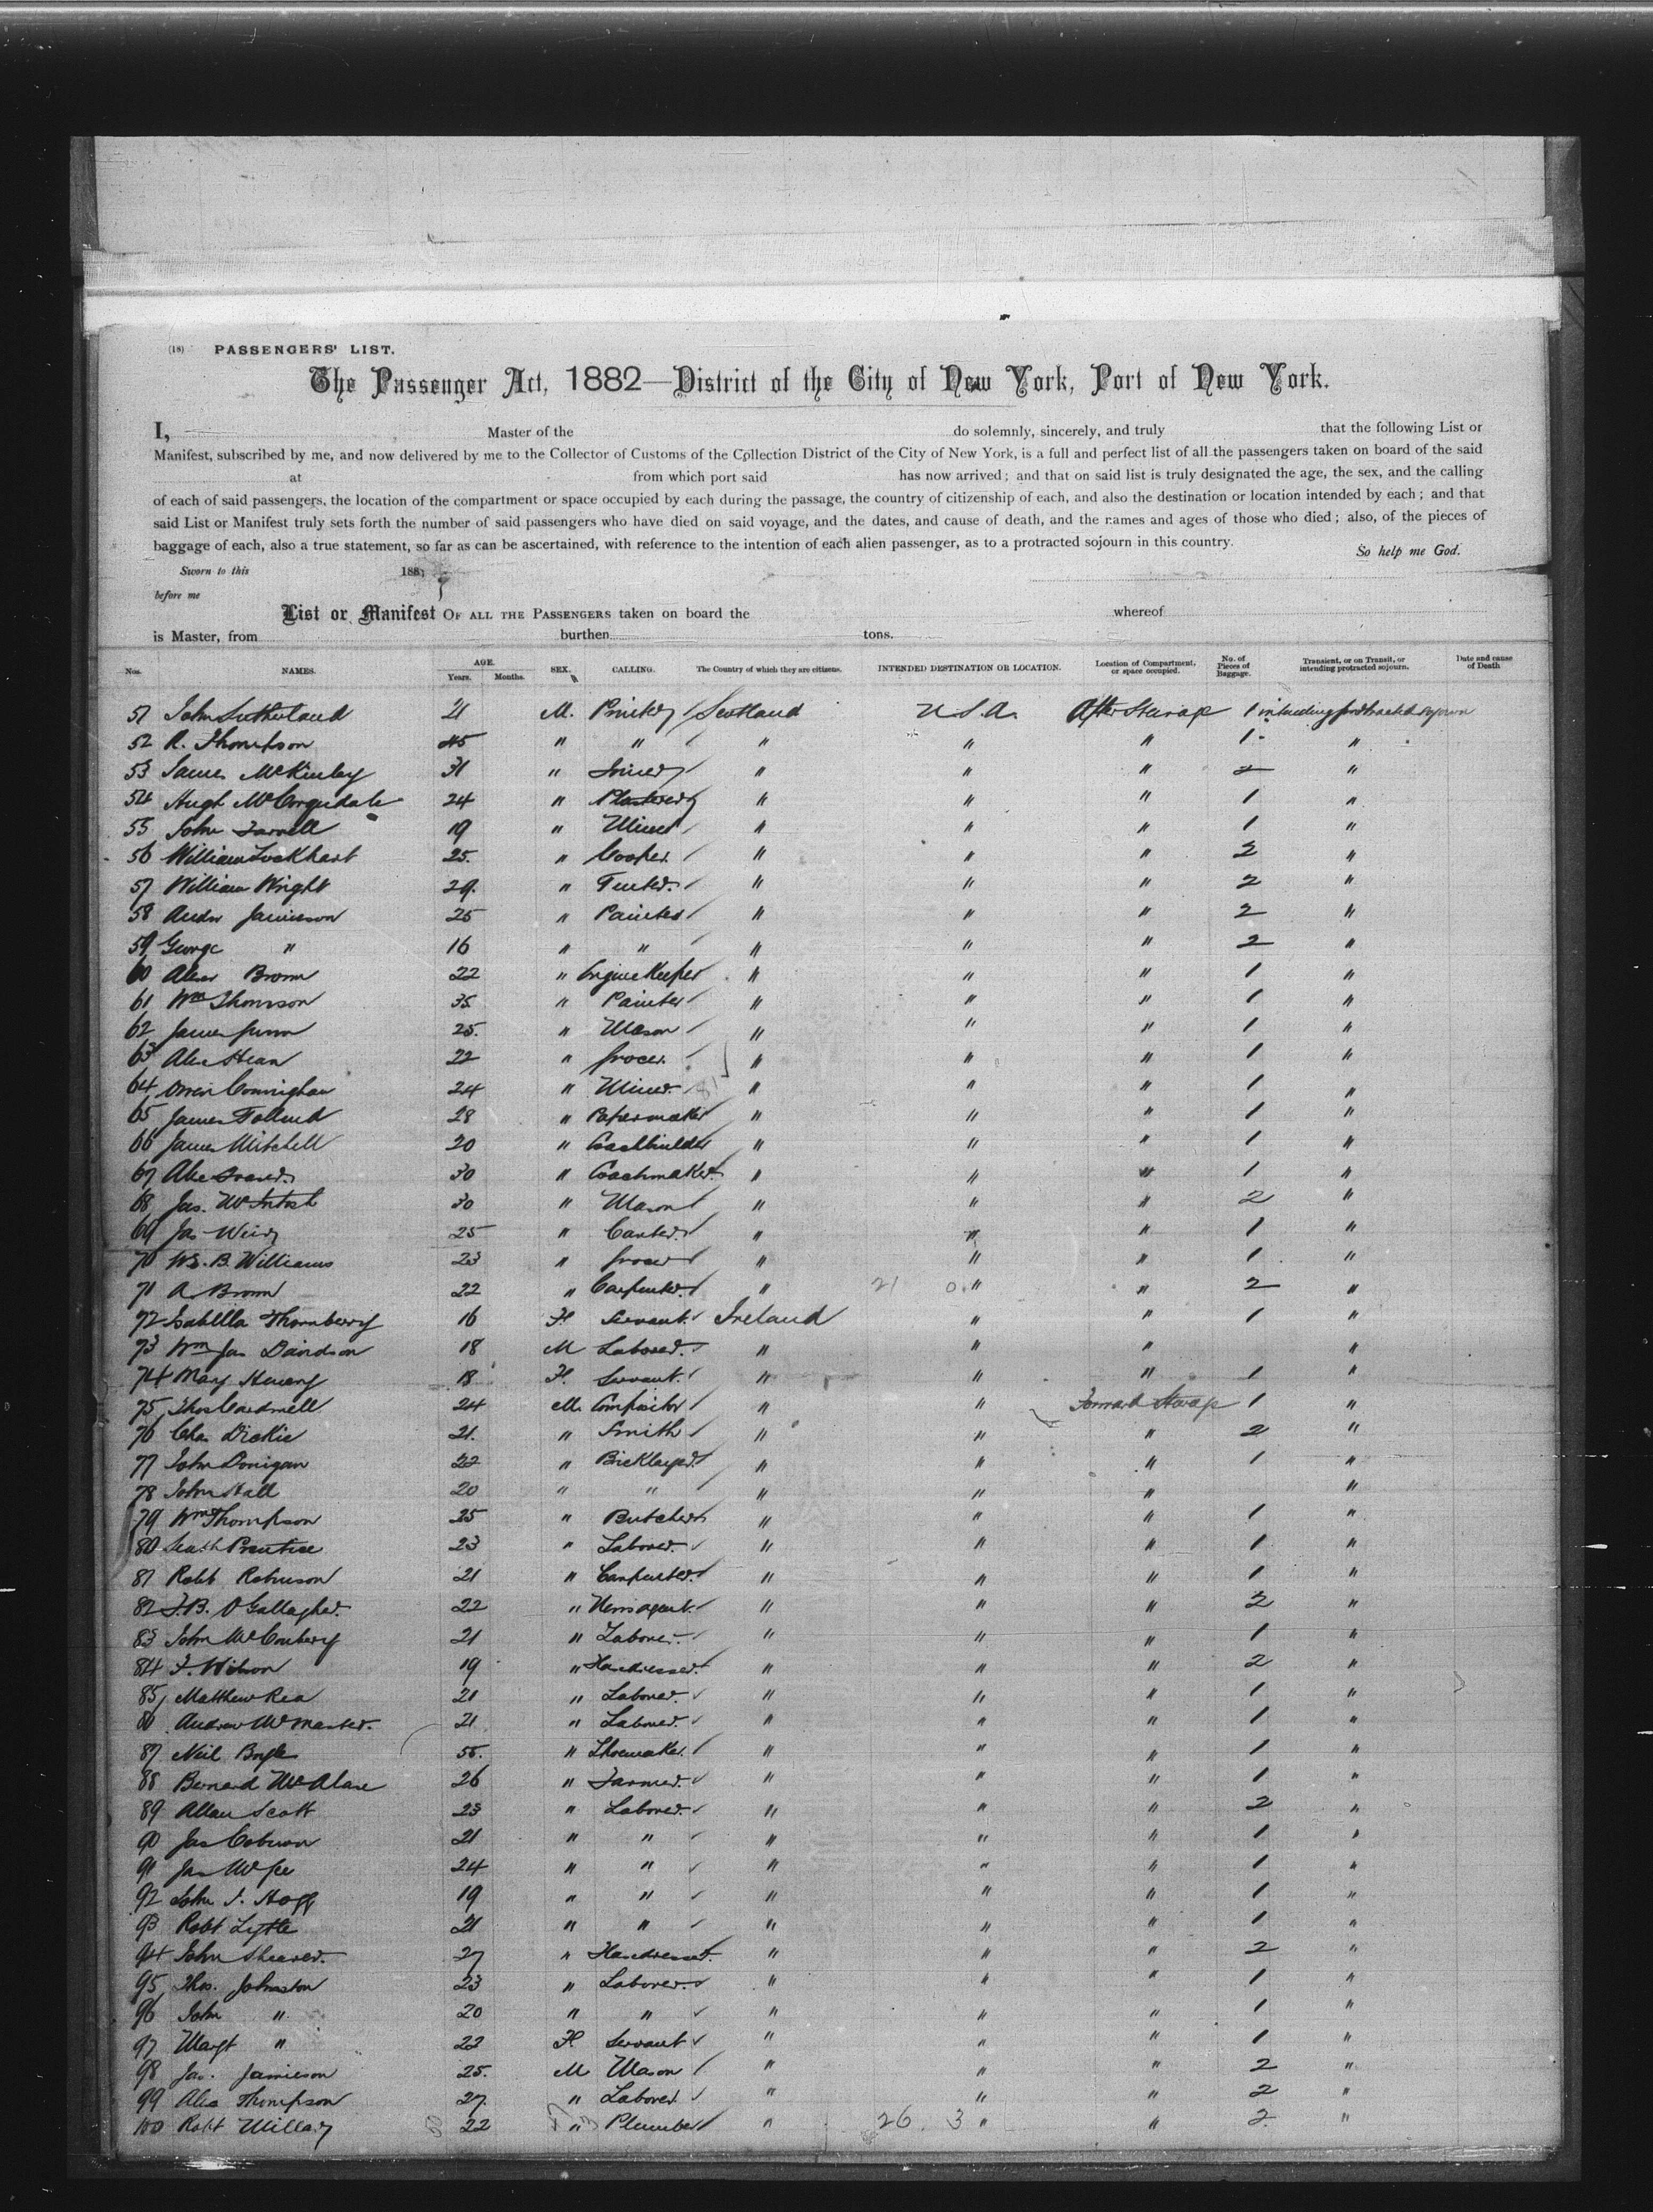 (18) PASSENGERS' LIST.
The Passenger Act, 1882—District of the City of New York, Port of New York.
I, Master of the do solemnly, sincerely, and truly that the following List or
Manifest, subscribed by me, and now delivered by me to the Collector of Customs of the Collection District of the City of New York, is a full and perfect list of all the passengers taken on board of the said
at from which port said has now arrived; and that on said list is truly designated the age, the sex, and the calling
of each of said passengers, the location of the compartment or space occupied by each during the passage, the country of citizenship of each, and also the destination or location intended by each; and that
said List or Manifest truly sets forth the number of said passengers who have died on said voyage, and the dates, and cause of death, and the names and ages of those who died; also, of the pieces of
baggage of each, also a true statement, so far as can be ascertained, with reference to the intention of each alien passenger, as to a protracted sojourn in this country. So help me God.
Sworn to this 188
before me
List or Manifest OF ALL THE PASSENGERS taken on board the whereof
is Master, from burthen tons.
Nos. NAMES. AGE. Years. Months. SEX. CALLING. The Country of which they are citizens. INTENDED DESTINATION OR LOCATION. Location of Compartment, or space occupied. No. of Pieces of Baggage. Transient, or on Transit, or intending protracted sojourn. Date and cause of Death
51 John Sutherland 21 M. Printer Scotland U.S.A. After Steerage 1 intending protracted sojourn
52 R. Thompson 45 " " " " " 1 "
53 James McKinley 31 " Joiner " " " 2 "
54 Hugh McCorquidale 24 " Plasterer " " " 1 "
55 John Farrell 19 " Miner " " " 1 "
56 William Lockhart 25. " Cooper " " " 2 "
57 William Wright 29. " " " " 2 "
58 Andw Jamieson 25 " Painter " " " 2 "
59 George " 16 " " " " " 2 "
60 Alex Brown 22 " Engine Keeper " " " 1 "
61 Wm Thomson 35 " Painter " " " 1 "
62 James Gunn 25. " Mason " " " 1 "
63 Alex 22 " Grocer " " " 1 "
64 Owen Connigham 24 " Miner " " " 1 "
65 James 28 " Papermaker " " " 1 "
66 James Mitchell 20 " Coachbuilder " " " 1 "
67 Alex Fraser 30 " Coachmaker " " " 1 "
68 Jas. McIntosh 30 " Mason " " " 2 "
69 Jas Weir 25 " Carter " " " 1 "
70 B. Williams 23 " Grocer " " " 1 "
71 A Brown 22 " Carpenter " 21 0 " " 2 "
72 Isabella Thornberry 16 F Servant Ireland " " 1 "
73 Wm Jas Davidson 18 M Laborer " " " "
74 Mary Henery 18 F. Servant " " " 1 "
75 Thos Cardwell 24 M. Compositor " " Forward Steerage 1 "
76 Chas Dickie 21. " Smith " " " 2 "
77 John Donigan 22 " Bricklayer " " " 1 "
78 John Hall 20 " " " " " "
79 Wm Thompson 25 " Butcher " " " 1 "
80 Prentice 23 " Laborer " " " 1 "
81 Robt Robinson 21 " Carpenter " " " 1 "
82 J.B. O'Gallagher 22 " Newsagent " " " 2 "
83 John McConbery 21 " Laborer " " " 1 "
84 J. Wilson 19 " " " " 2 "
85 Matthew Rea 21 " Laborer " " " 1 "
86 Andrew McMaster 21 " Laborer " " " 1 "
87 Neil Boyle 55. " Shoemaker " " " 1 "
88 Bernard 26 " Farmer " " " 1 "
89 Allan Scott 23 " Laborer " " " 2 "
90 Jas Coburn 21 " " " " " 1 "
91 Jas McGee 24 " " " " " 1 "
92 John J. Hogg 19 " " " " " 1 "
93 Robt Lyttle 21 " " " " " 1 "
94 John Shearer 27 " " " " 2 "
95 Thos. Johnston 23 " Laborer " " " 1 "
96 John " 20 " " " " " 1 "
97 Margt " 22 F Servant " " " 1 "
98 Jas. Jamieson 25. M Mason " " " 2 "
99 Alex Thompson 27. " Laborer " " " 2 "
100 Robt Millar 22 " Plumber " 26 3 " " 2 "